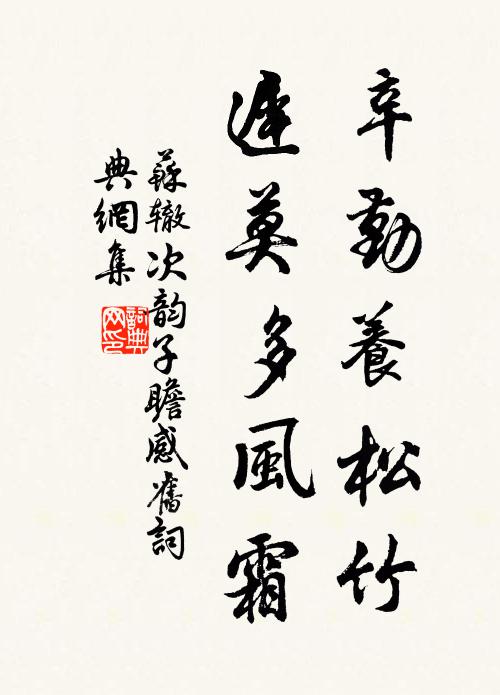 辛勤養松竹
遲莫多風霜
蘇辙次韵子瞻感舊詞
典網集
詞典
网印